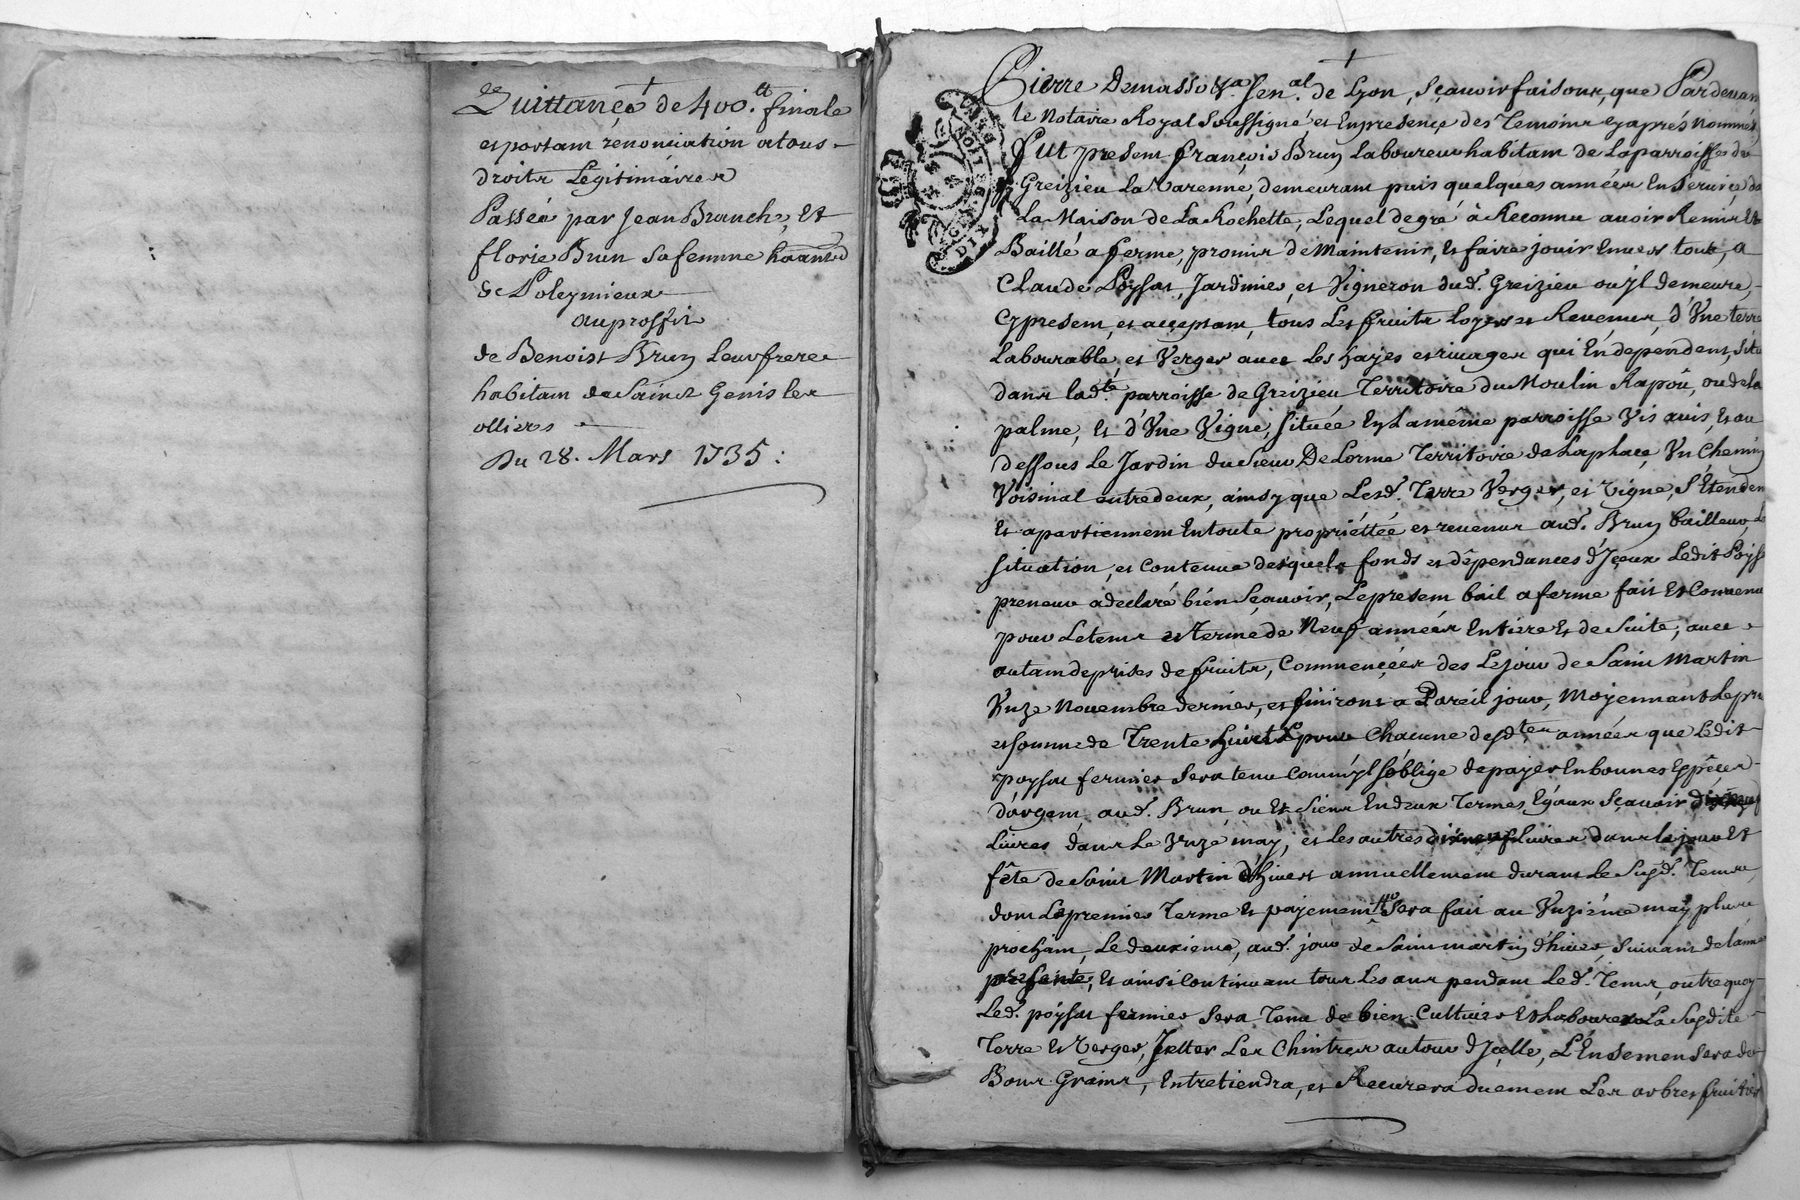 Quittance de 400.tt finale
et portant renonciation a tous
droits Legitimaires
Passée par Jean Branche, Et
florie Brun sa femme habitants
de Poleymieux
au proffit
de Benoist Brun Leur frere
habitant de Saint Genis les
olliers
Du 28. Mars 1735.
Pierre Demasso Sen.al de Lyon, Sçavoir faisons, que Pardevan
le Notaire Royal Soussigné, et En presence des Temoins cy aprés nommés
fut present françois Brun Laboureur habitant de Laparroisse de
Greizieu La Varenne, demeurant puis quelques années En Service de
La Maison de La Rochette, Lequel de gré à Reconnu avoir Remis Et
Baillé a ferme, promis de Maintenir, et faire jouir Envers tous, a
Claude Poysat, Jardinier, et Vigneron dud. Greizieu ou yl demeure,
cy present, et acceptant, tous Les fruits Loyers et Revenus, d'Une terre
Labourable, et Verger avec Les hayes et rivages qui En dependent, Situ
dans lad.te parroisse de Greizieu Territoire du Moulin Rapoû, ou de la
palme, et d'Une Vigne, Située En La même parroisse Vis avis, Et au
dessous Le Jardin du Sieur DeLorme Territoire de La place, Un Chemin
Voisinal entre deux, ainsy que Lesd. Terre Verger, et Vigne, S'Etenden
Et apartiennent En toute propriettée et revenus aud. Brun bailleur, La
Situation, et Contenue desquels fonds et dépendances d'Yceux Ledit Poysa
preneur a declaré bién Sçavoir, Le present bail a ferme fait Et Convenu
pour Le tems et Terme de Neuf années Entiere Et de Suite, avec
autant de prises de fruits, Commencées dès Le jour de Saint Martin
Unze Novembre dernier, et finiront a Pareil jour, Moyennant Le pri
et Somme de Trente pour Chacune desd.tes années que Ledit
poysat fermier Sera tenu Comm'yl S'oblige de payer En bonnes Espéces
d'argent, aud. Brun, ou Et Siens En deux Termes Egaux Sçavoir
Livres dans Le Unze may, et Les autres Livres dans le jour Et
fête de Saint Martin d'hiver annuellement durant Le Susd. Tems,
dont Le premier Terme Et payement Sera fait au Unziéme may plus
prochain, Le deuxieme, aud. jour de Saint martin d'hiver, Suivant de l'anné
presente, Et ainsi Continuant tous Les ans pendant Led. Tems, outre quoy
Led. poysat fermier Sera Tenu de bien Cultiver Et Labourer La Susdite
Terre Et Verger, Jetter Les Chintres autour d'Ycelle, L'Ensemensera de
Bons Grains, Entretiendra, et Recurera duement Les arbres fruitier